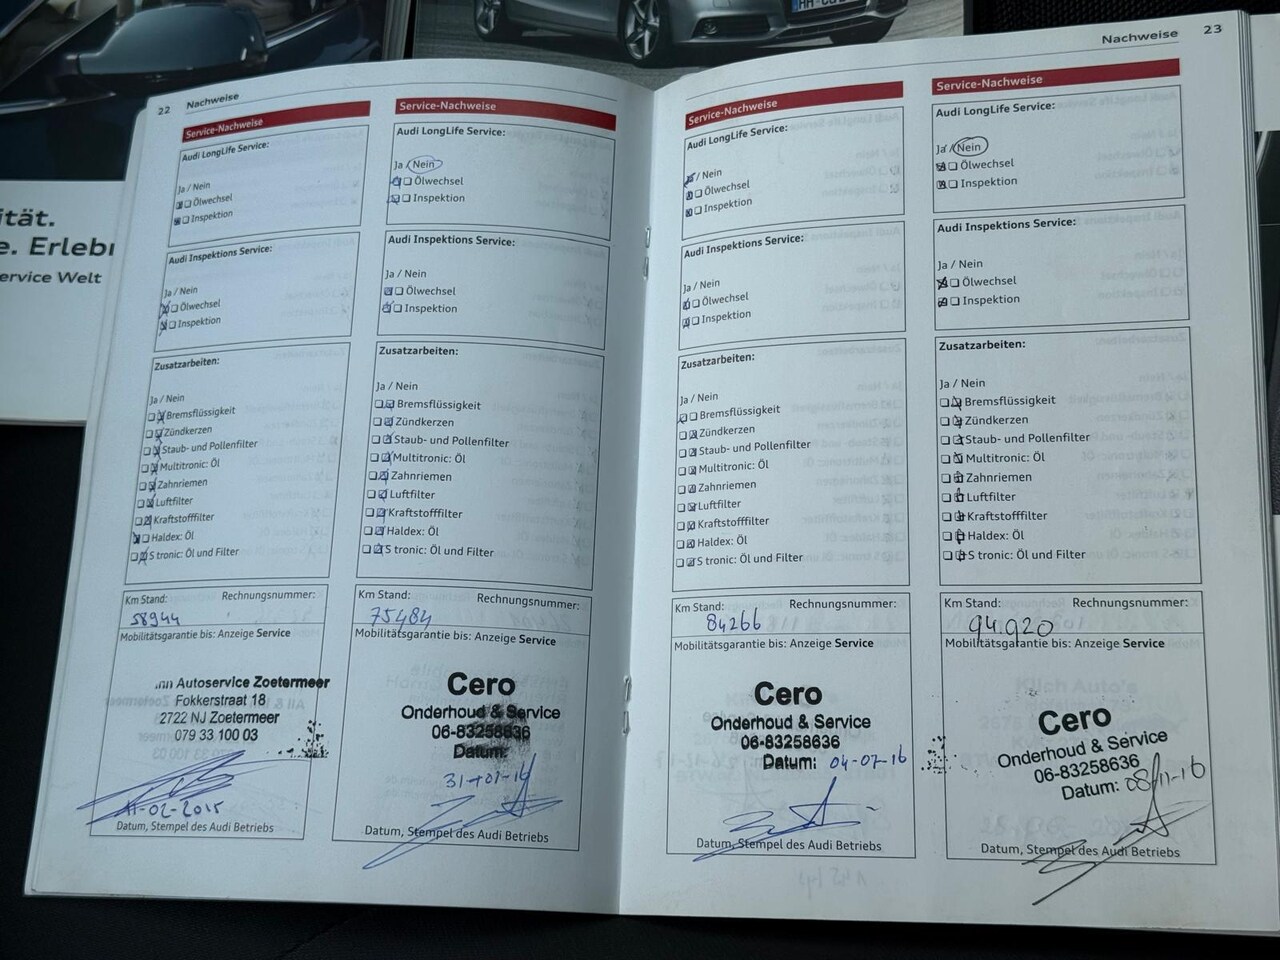 ität.
e. Erlebn
ervice Welt
22 Nachweise
Service-Nachweise
Audi LongLife Service:
Ja / Nein
Ölwechsel
Inspektion
Audi Inspektions Service:
Ja / Nein
Ölwechsel
Inspektion
Zusatzarbeiten:
Ja / Nein
Bremsflüssigkeit
Zündkerzen
Staub- und Pollenfilter
Multitronic: Öl
Zahnriemen
Luftfilter
Kraftstofffilter
Haldex: Öl
S tronic: Öl und Filter
Km Stand: Rechnungsnummer:
58944
Mobilitätsgarantie bis: Anzeige Service
Autoservice Zoetermeer
Fokkerstraat 18
2722 NJ Zoetermeer
079 33 100 03
11-02-2015
Datum, Stempel des Audi Betriebs
Service-Nachweise
Audi LongLife Service:
Ja / Nein
Ölwechsel
Inspektion
Audi Inspektions Service:
Ja / Nein
Ölwechsel
Inspektion
Zusatzarbeiten:
Ja / Nein
Bremsflüssigkeit
Zündkerzen
Staub- und Pollenfilter
Multitronic: Öl
Zahnriemen
Luftfilter
Kraftstofffilter
Haldex: Öl
S tronic: Öl und Filter
Km Stand: Rechnungsnummer:
75484
Mobilitätsgarantie bis: Anzeige Service
Cero
Onderhoud & Service
06-83258636
Datum:
31-01-16
Datum, Stempel des Audi Betriebs
Nachweise 23
Service-Nachweise
Audi LongLife Service:
Ja / Nein
Ölwechsel
Inspektion
Audi Inspektions Service:
Ja / Nein
Ölwechsel
Inspektion
Zusatzarbeiten:
Ja / Nein
Bremsflüssigkeit
Zündkerzen
Staub- und Pollenfilter
Multitronic: Öl
Zahnriemen
Luftfilter
Kraftstofffilter
Haldex: Öl
S tronic: Öl und Filter
Km Stand: Rechnungsnummer:
84266
Mobilitätsgarantie bis: Anzeige Service
Cero
Onderhoud & Service
06-83258636
Datum: 04-07-16
Datum, Stempel des Audi Betriebs
Service-Nachweise
Audi LongLife Service:
Ja / Nein
Ölwechsel
Inspektion
Audi Inspektions Service:
Ja / Nein
Ölwechsel
Inspektion
Zusatzarbeiten:
Ja / Nein
Bremsflüssigkeit
Zündkerzen
Staub- und Pollenfilter
Multitronic: Öl
Zahnriemen
Luftfilter
Kraftstofffilter
Haldex: Öl
S tronic: Öl und Filter
Km Stand: Rechnungsnummer:
94.920
Mobilitätsgarantie bis: Anzeige Service
Cero
Onderhoud & Service
06-83258636
Datum: 08/11-16
Datum, Stempel des Audi Betriebs